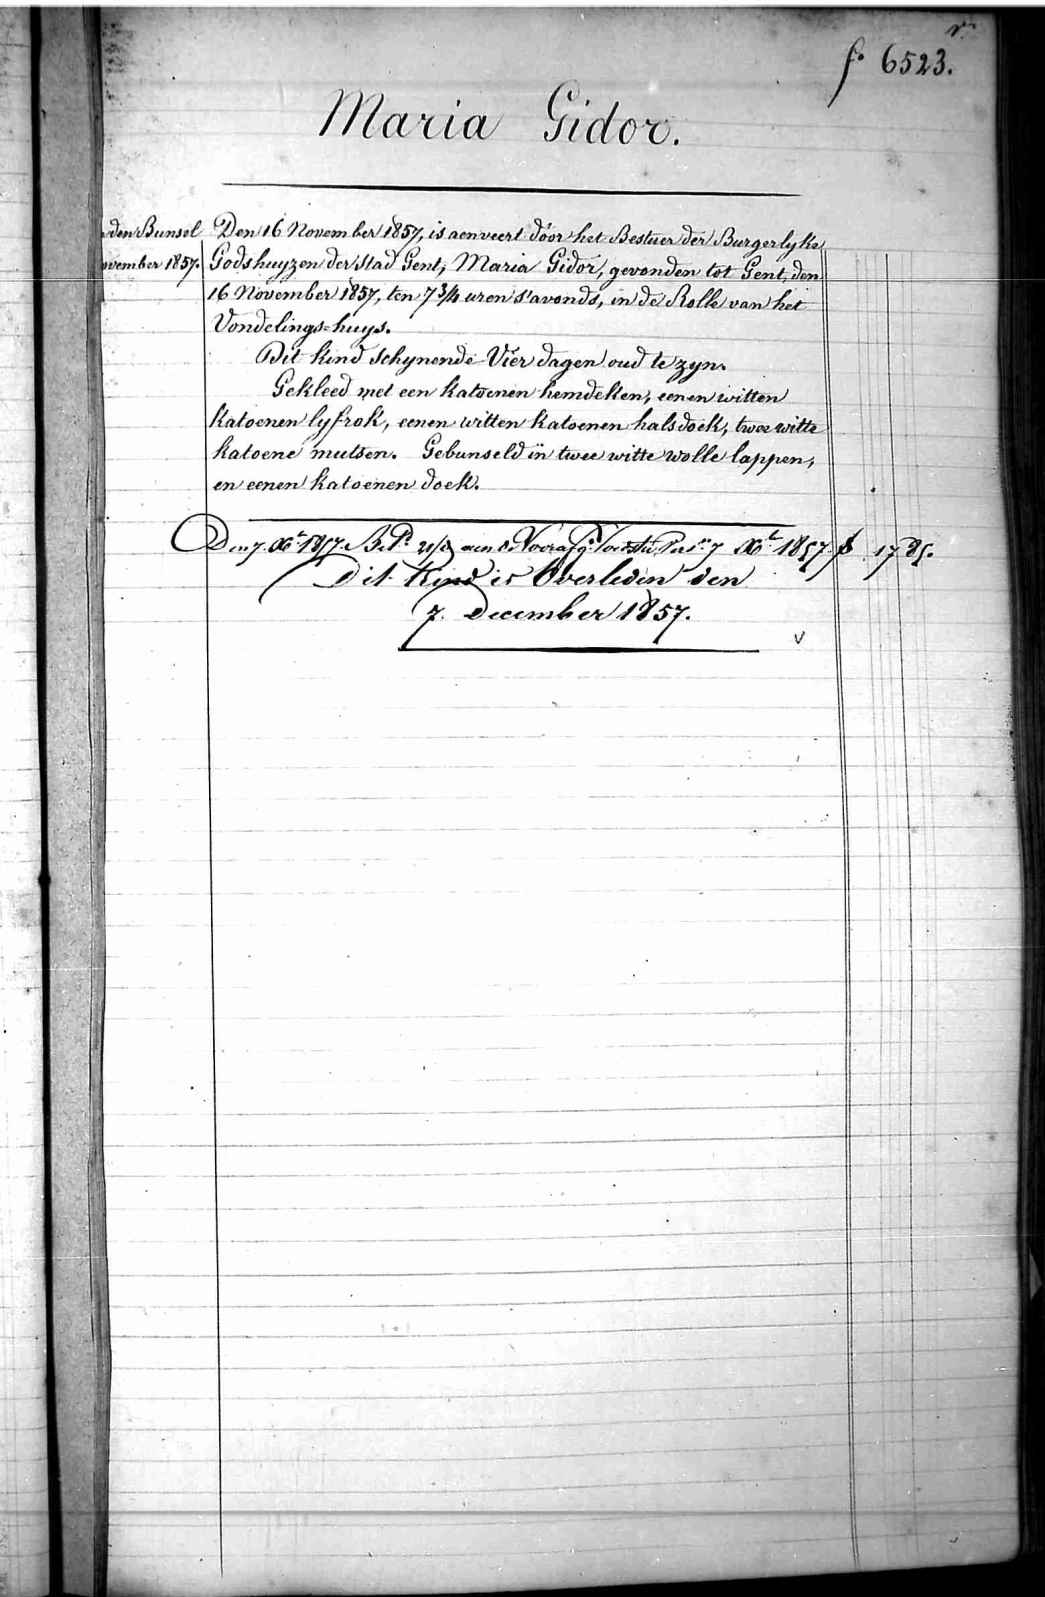 f° 6523.
Maria Gidor.
den Bunsel
vember 1857.
Den 16 November 1857, is aenveert door het Bestuer der Burgerlyke
Godshuyzen der stad Gent, Maria Gidor, gevonden tot Gent, den
16 November 1857, ten 7 3/4 uren s'avonds, in de Rolle van het
Vondelings-huys.
Dit kind schynende Vier dagen oud te zyn.
Gekleed met een katoenen hemdeken, eenen witten
katoenen lyfrok, eenen witten katoenen halsdoek, twee witte
katoene mutsen. Gebunseld in twee witte wolle lappen,
en eenen katoenen doek.
Den 7 Xbr 1857. 7 Xbr 1857 f 17 85.
Dit Kind is Overleden den
7. December 1857.